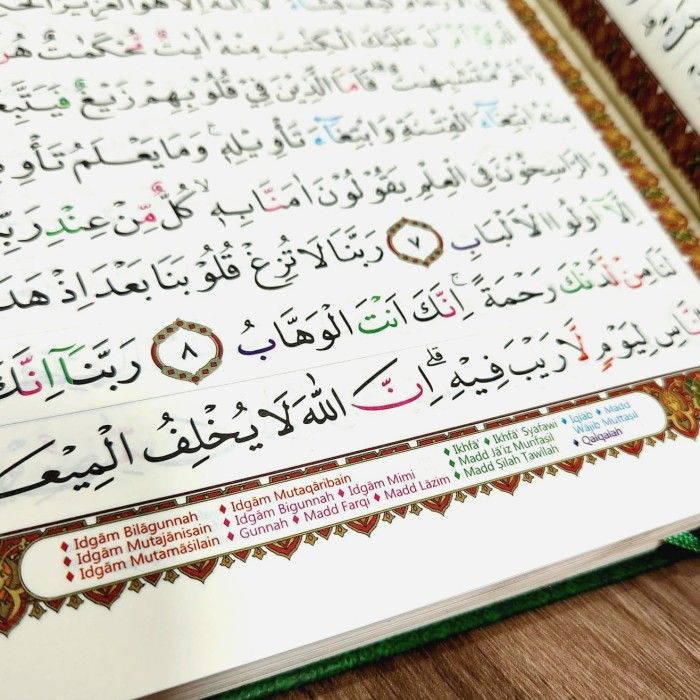 لَآ اِلٰهَ اِلَّا هُوَ الْعَزِيْزُ
عَلَيْكَ الْكِتٰبَ مِنْهُ اٰيٰتٌ مُّحْكَمٰتٌ هُنَّ
وَاُخَرُ مُتَشٰبِهٰتٌۗ فَاَمَّا الَّذِيْنَ فِيْ قُلُوْبِهِمْ زَيْغٌ فَيَتَّبِعُوْنَ
مِنْهُ ابْتِغَاۤءَ الْفِتْنَةِ وَابْتِغَاۤءَ تَأْوِيْلِهٖۚ وَمَا يَعْلَمُ تَأْوِ
وَالرّٰسِخُوْنَ فِى الْعِلْمِ يَقُوْلُوْنَ اٰمَنَّا بِهٖۙ كُلٌّ مِّنْ عِنْدِ رَبِّ
اِلَّآ اُولُوا الْاَلْبَابِ ٧ رَبَّنَا لَا تُزِغْ قُلُوْبَنَا بَعْدَ اِذْ هَدَ
لَنَا مِنْ لَّدُنْكَ رَحْمَةًۚ اِنَّكَ اَنْتَ الْوَهَّابُ ٨ رَبَّنَآ اِنَّكَ
النَّاسِ لِيَوْمٍ لَّا رَيْبَ فِيْهِۗ اِنَّ اللّٰهَ لَا يُخْلِفُ الْمِيْعَ
♦ Idgām Bilāgunnah ♦ Idgām Mutaqāribain
♦ Idgām Mutajānisain
♦ Idgām Mutamāṡilain
♦ Idgām Bigunnah ♦ Idgām Mimi
♦ Gunnah ♦ Madd Farqi ♦ Madd Lāzim
♦ Ikhfā' ♦ Ikhfā' Syafawi
♦ Madd Jā'iz Munfaṣil
♦ Madd Ṣilah Ṭawīlah
♦ Iqlāb ♦ Madd
Wājib Muttaṣil
♦ Qalqalah